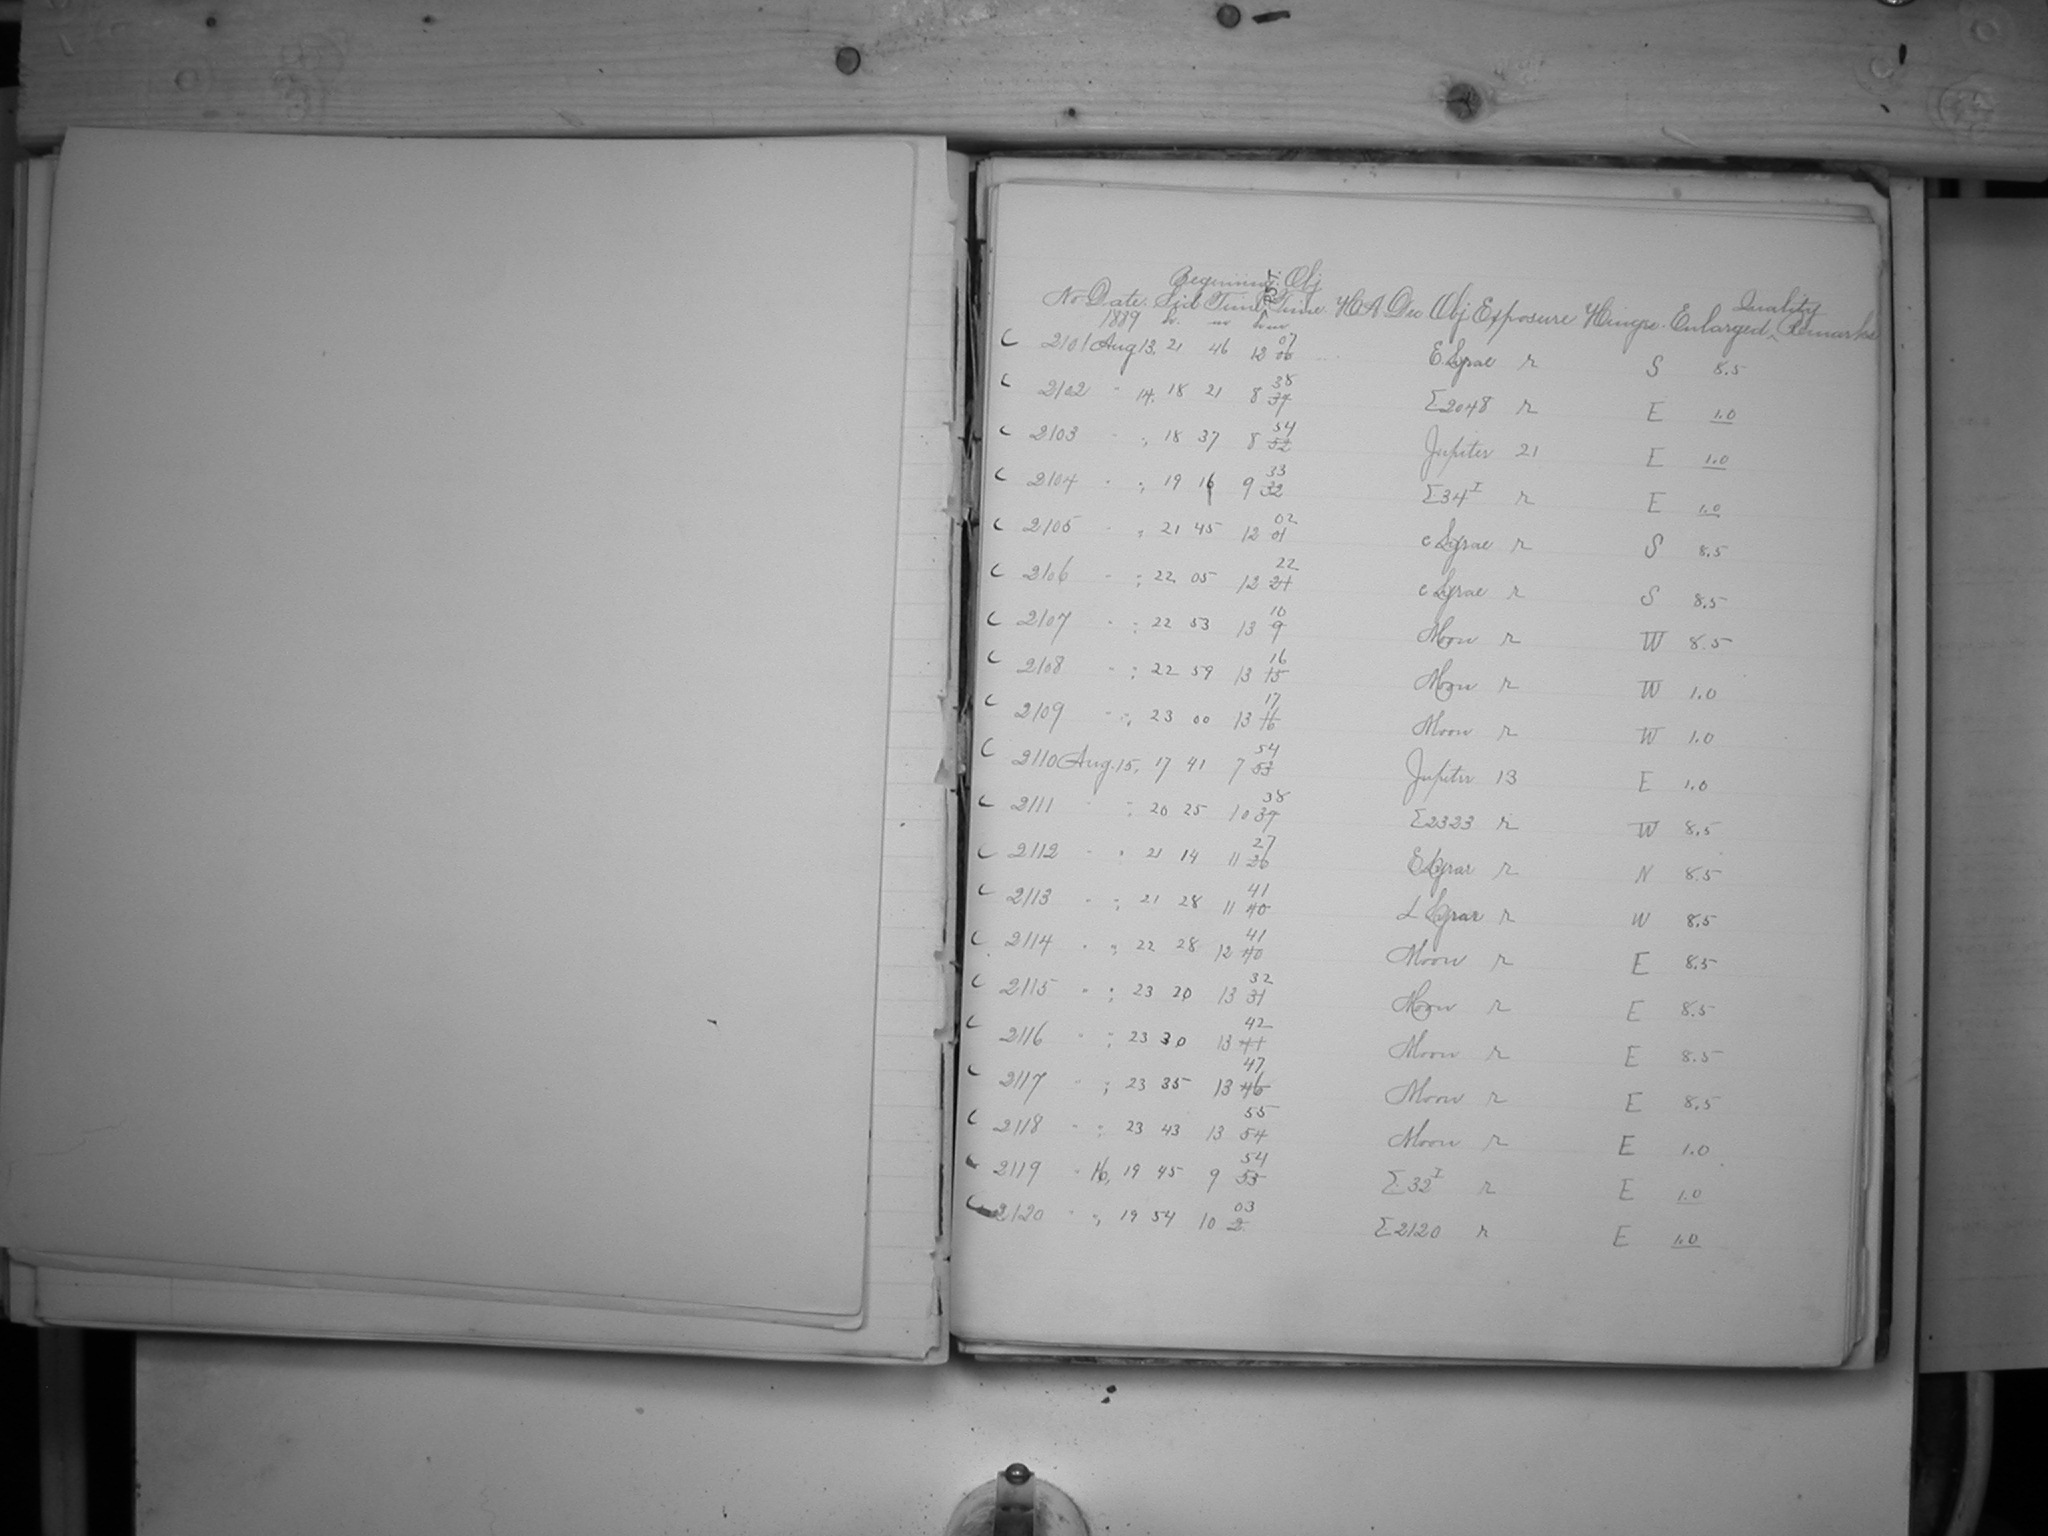 Beginning Obj
No Date. Sid Time P.S.T. Time. H A Dec Obj Exposure Hinge. Enlarged Quality Remarks
1889 h. m h m
C 2101 Aug 13, 21 46 12 07 06 E Lyrae r S 8.5
C 2102 " 14, 18 21 8 38 37 Σ2048 r E 1.0
C 2103 " " 18 37 8 54 52 Jupiter 21 E 1.0
C 2104 " " 19 16 9 33 32 Σ34 I r E 1.0
C 2105 " " 21 45 12 02 01 c Lyrae r S 8.5
C 2106 " " 22 05 12 22 21 c Lyrae r S 8.5
C 2107 " " 22 53 13 10 9 Moon r W 8.5
C 2108 " " 22 59 13 16 15 Moon r W 1.0
C 2109 " " 23 00 13 17 16 Moon r W 1.0
C 2110 Aug. 15, 17 41 7 54 53 Jupiter 13 E 1.0
C 2111 " " 20 25 10 38 37 Σ2323 r W 8.5
C 2112 " " 21 14 11 27 26 E Lyrae r N 8.5
C 2113 " " 21 28 11 41 40 Lyrae r W 8.5
C 2114 " " 22 28 12 41 40 Moon r E 8.5
C 2115 " " 23 20 13 32 31 Moon r E 8.5
C 2116 " " 23 30 13 42 41 Moon r E 8.5
C 2117 " " 23 35 13 47 46 Moon r E 8.5
C 2118 " " 23 43 13 55 54 Moon r E 1.0
C 2119 " 16, 19 45 9 54 53 Σ32 I r E 1.0
C 2120 " " 19 54 10 03 2 Σ2120 r E 1.0